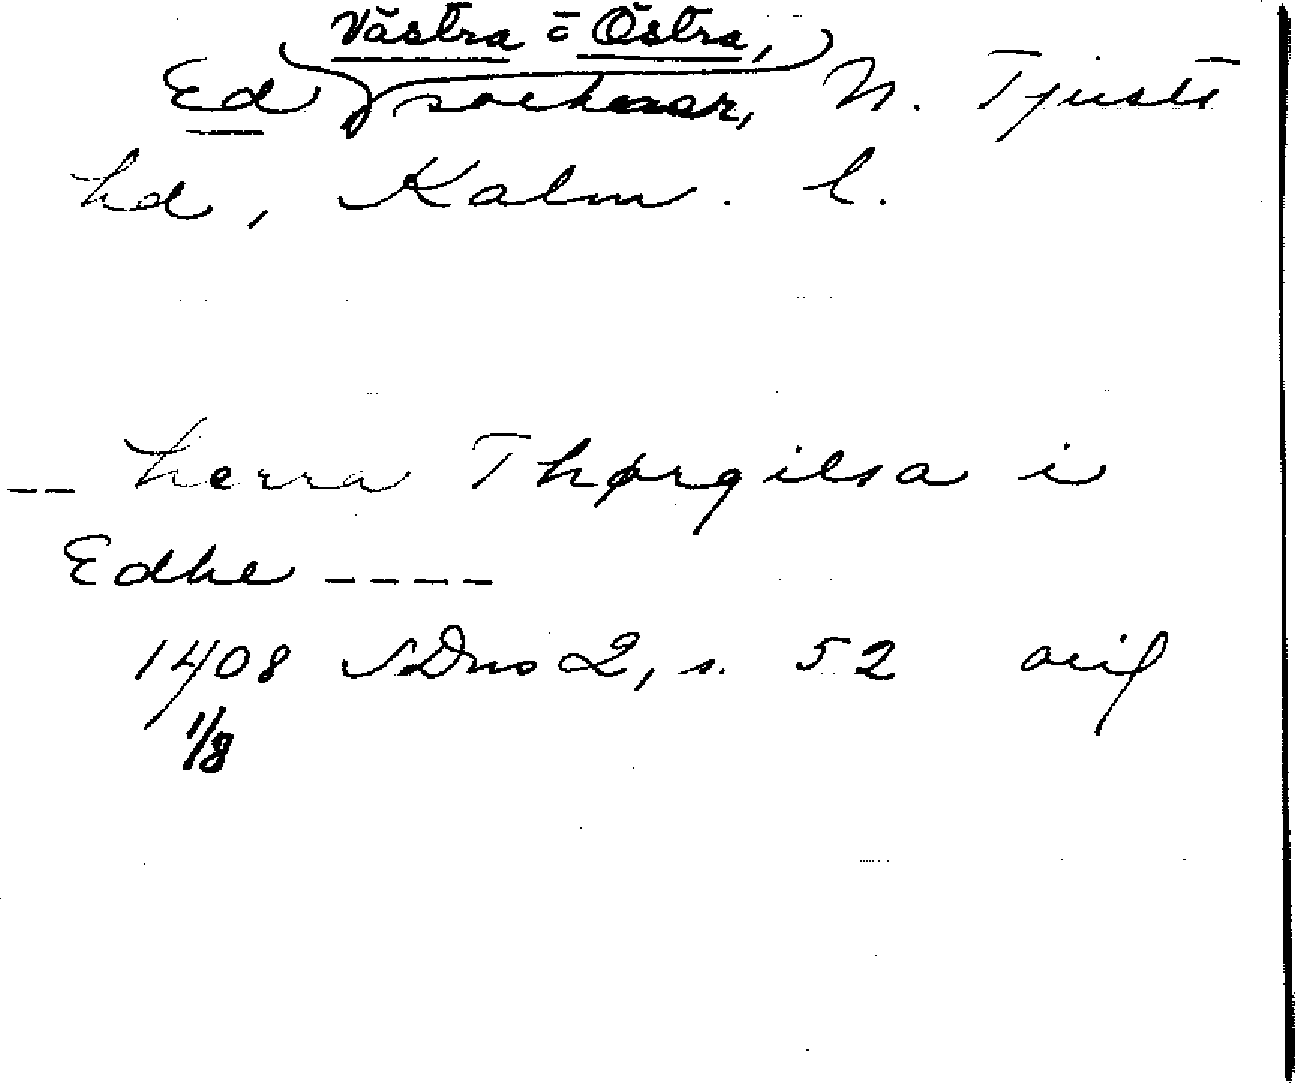 Västra o Östra,
Ed socknar, N. Tjusts
hd, Kalm. l.
-- herra Thørgilsa i
Edhe ----
1408 SDns 2, s. 52 avif
1/8